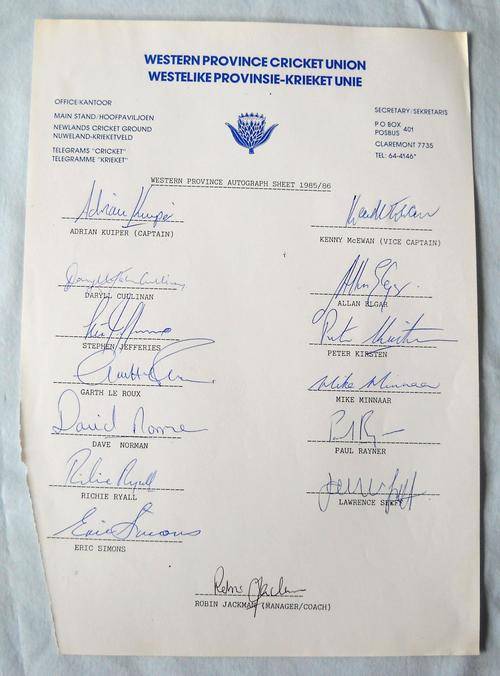 WESTERN PROVINCE CRICKET UNION
WESTELIKE PROVINSIE-KRIEKET UNIE
OFFICE/KANTOOR
MAIN STAND/HOOFPAVILJOEN
NEWLANDS CRICKET GROUND
NUWELAND-KRIEKETVELD
TELEGRAMS "CRICKET"
TELEGRAMME "KRIEKET"
SECRETARY/SEKRETARIS
P O BOX
POSBUS 401
CLAREMONT 7735
TEL: 64-4146*
WESTERN PROVINCE AUTOGRAPH SHEET 1985/86
Adrian Kuiper
ADRIAN KUIPER (CAPTAIN)
KENNY McEWAN (VICE CAPTAIN)
DARYLL CULLINAN
Allan Elgar
ALLAN ELGAR
STEPHEN JEFFERIES
Peter Kirsten
PETER KIRSTEN
GARTH LE ROUX
Mike Minnaar
MIKE MINNAAR
David Norman
DAVE NORMAN
PAUL RAYNER
Richie Ryall
RICHIE RYALL
LAWRENCE SEEFF
Eric Simons
ERIC SIMONS
Robin Jackman
ROBIN JACKMAN (MANAGER/COACH)